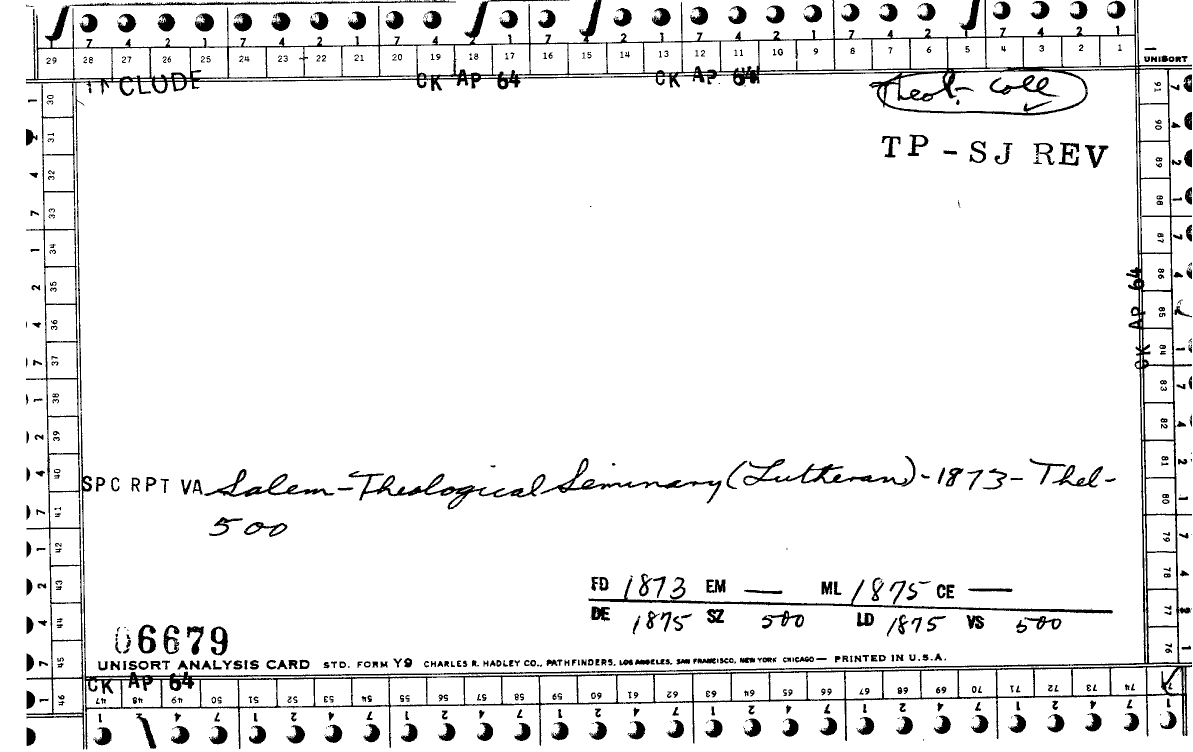 7 4 2 1 7 4 2 1 7 4 2 1 7 4 2 1 7 4 2 1 7 4 2 1 7 4 2 1
29 28 27 26 25 24 23 22 21 20 19 18 17 16 15 14 13 12 11 10 9 8 7 6 5 4 3 2 1
UNISORT
INCLUDE CK AP 64 CK AP 64 Theol. Coll
TP - SJ REV
CK AP 64
SPC RPT VA Salem - Theological Seminary (Lutheran) - 1873 - Thel -
500
FD 1873 EM — ML 1875 CE —
DE 1875 SZ 500 LD 1875 VS 500
06679
UNISORT ANALYSIS CARD STD. FORM Y9 CHARLES R. HADLEY CO., PATHFINDERS, LOS ANGELES, SAN FRANCISCO, NEW YORK CHICAGO — PRINTED IN U.S.A.
CK AP 64
47 48 49 50 51 52 53 54 55 56 57 58 59 60 61 62 63 64 65 66 67 68 69 70 71 72 73 74